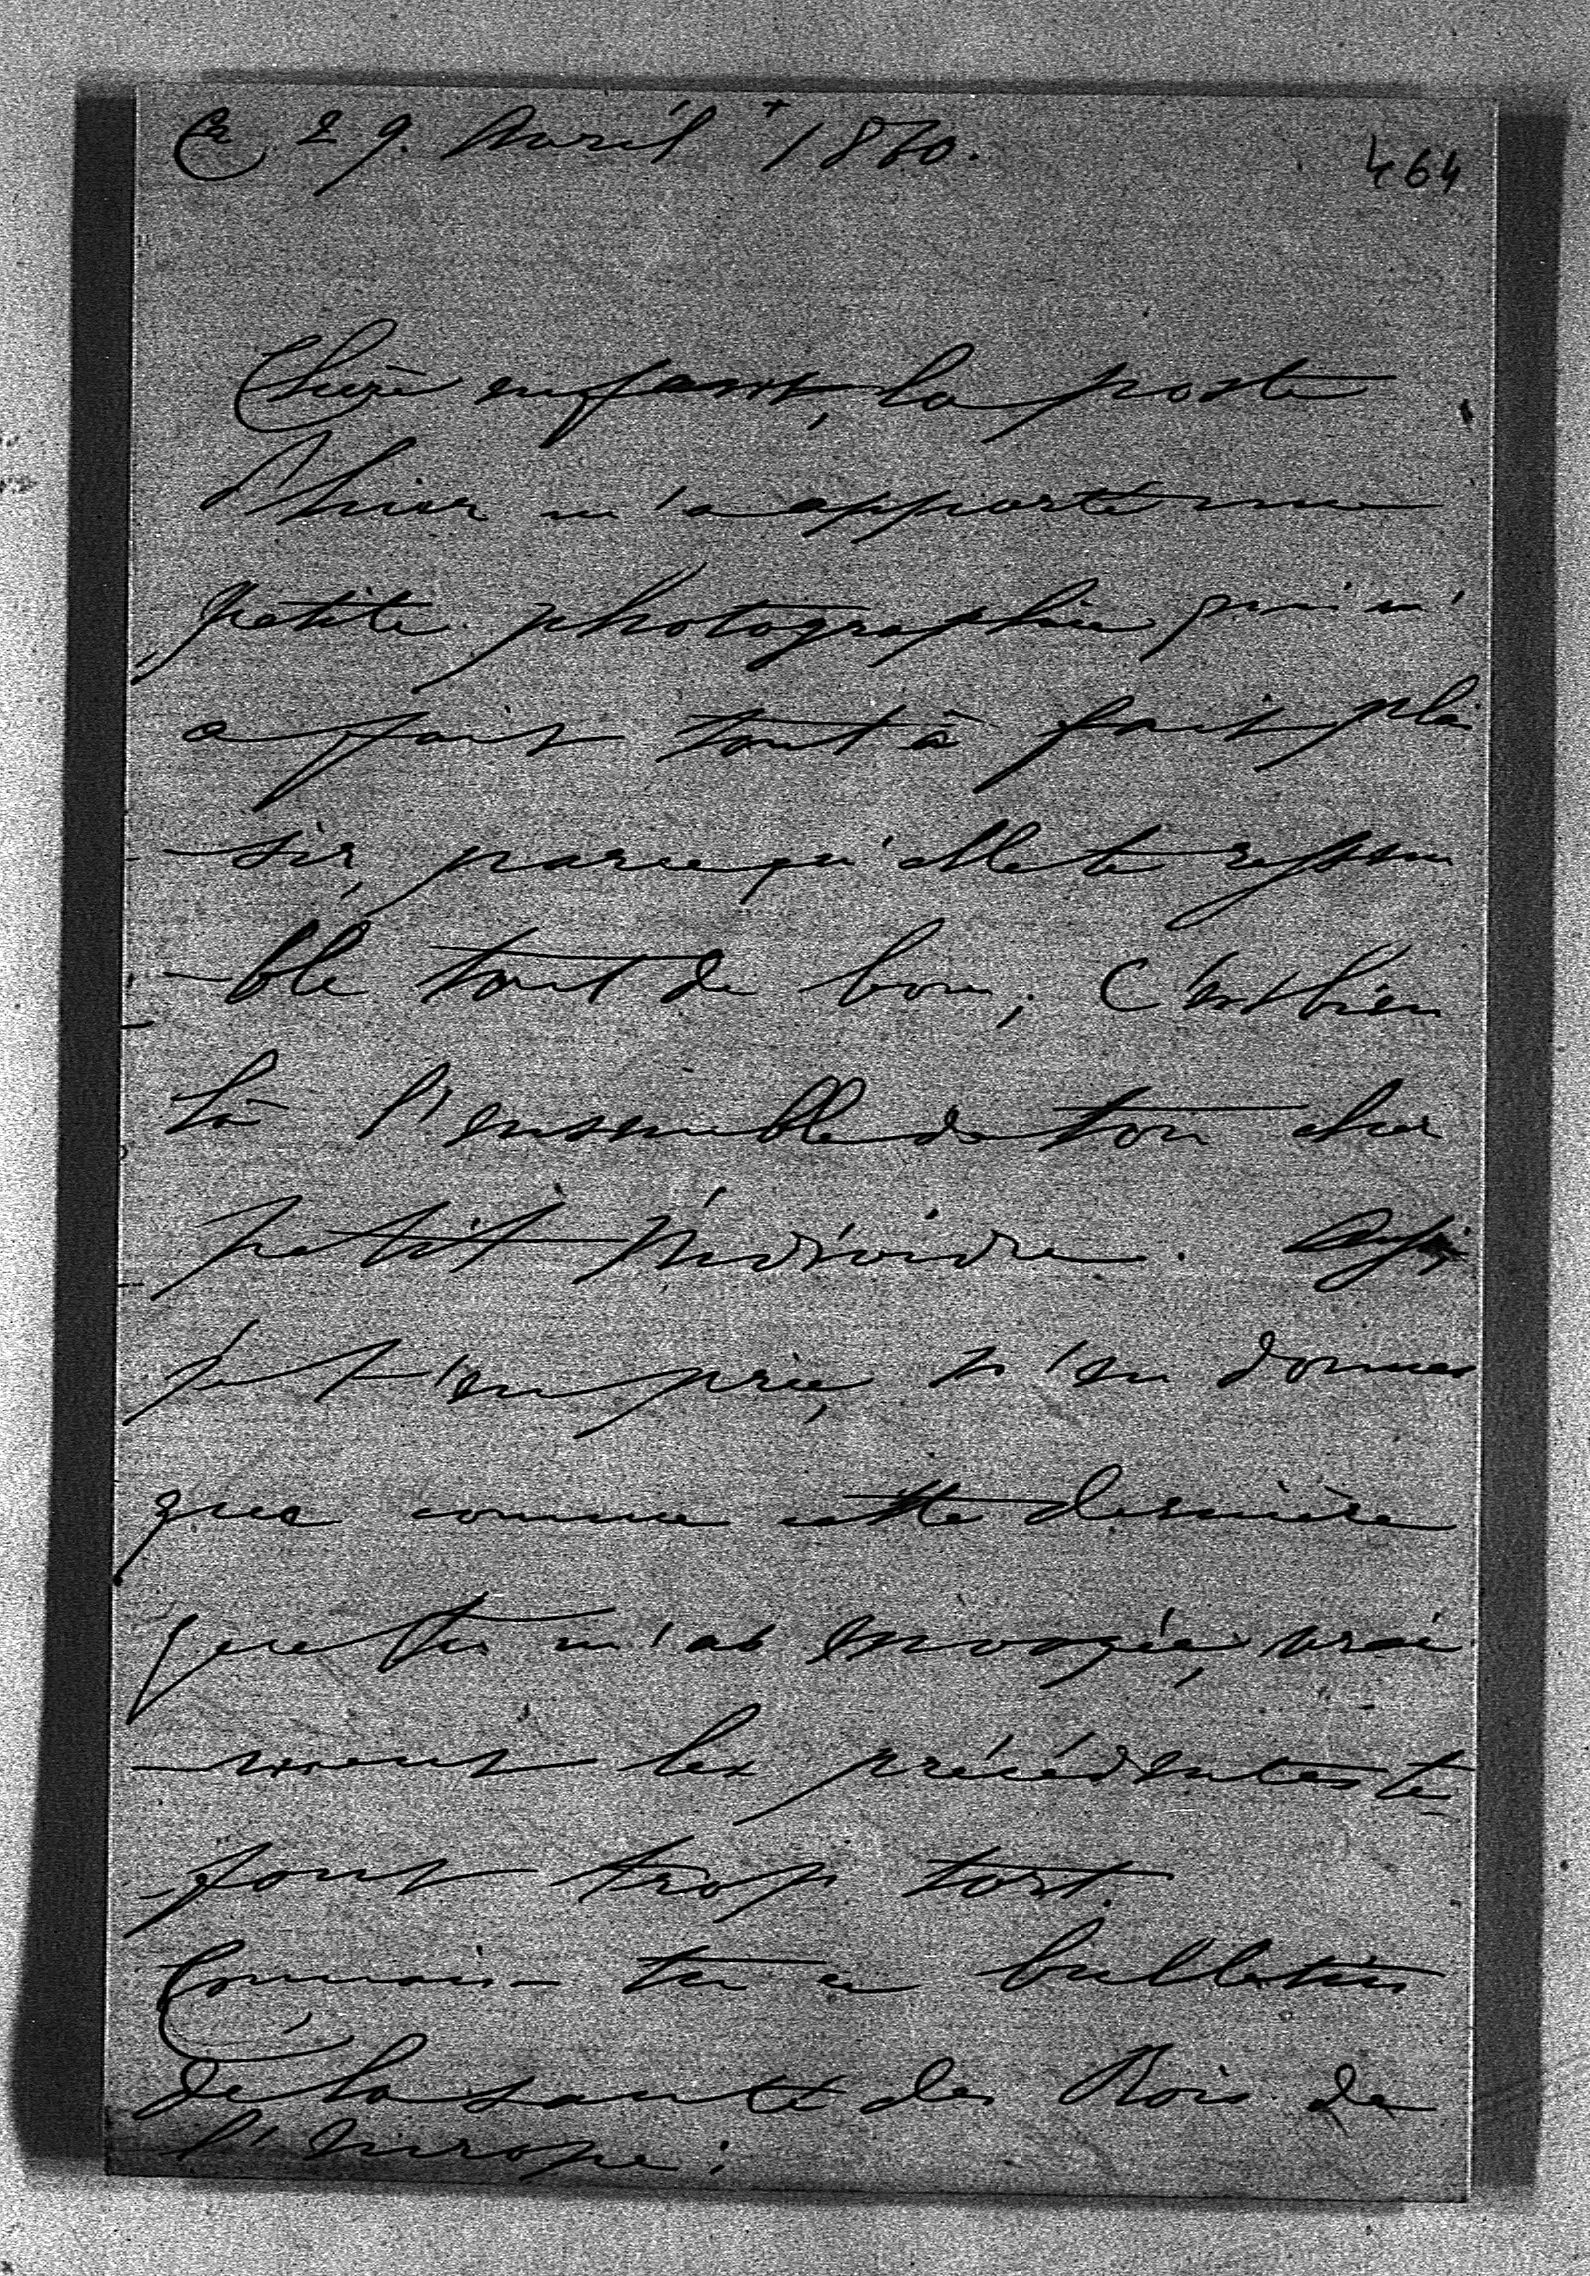 Ce 29. Avril 1870.
464
Chère enfant, la poste
d'hier m'a apporté une
petite photographie qui m'
a fait tout à fait plai
-sir, parcequ'elle te ressem
-ble tout de bon; C'est bien
là l'ensemble de ton cher
petit individu. Aussi,
je t'en prie, n'en donnes
que comme cette dernière
que tu m'as envoyée, vrai
-ment les précédentes te
font trop tort.
Connais-tu ce bulletin
de la santé des Rois de
l'Europe: